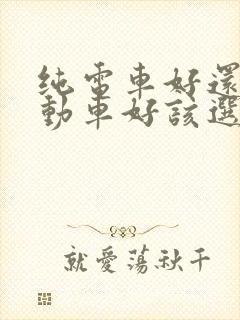 純電車好還
動車好該選
就愛蕩秋千